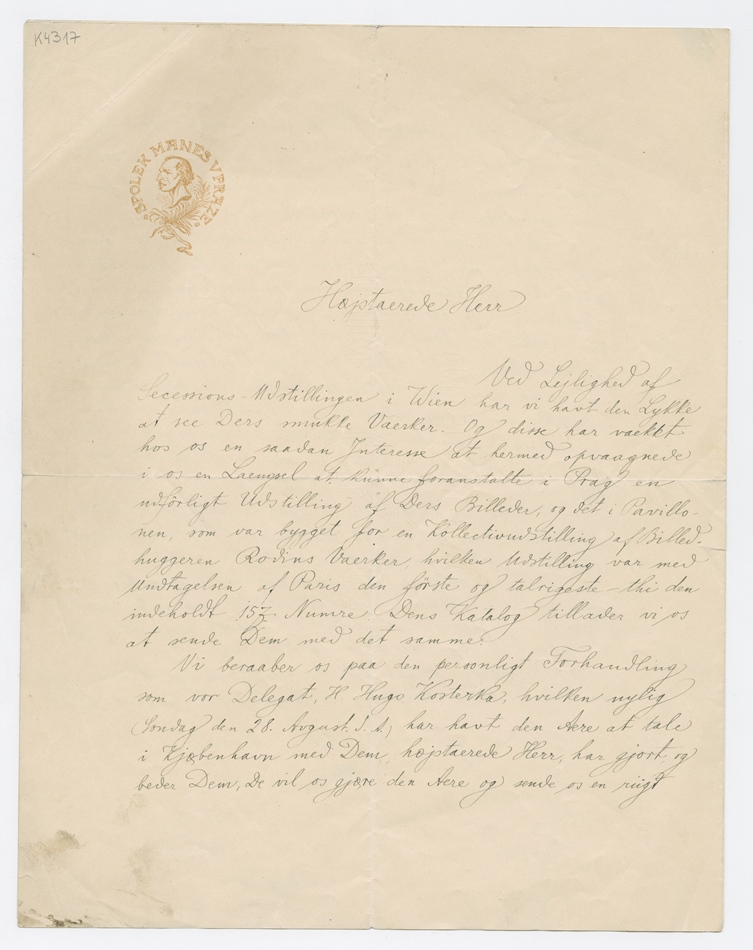 K4317
SPOLEK MANES V PRAZE
Højstaerede Herr
Ved Lejlighed af
Secessions-Udstillingen i Wien har vi havt den Lykke
at see Ders smukke Vaerker. Og disse har vaekket
hos os en saadan Interesse at hermed opvaagnede
i os en Laengsel at kunne foranstalte i Prag en
udførligt Udstilling af Ders Billeder, og det i Pavillo-
nen, som var bygget for en Kollectivudstilling af Billed-
huggeren Rodins Vaerker, hvilken Udstilling var med
Undtagelsen af Paris den første og talrigeste – thi den
indeholdt 157 Numre. Dens Katalog tillader vi os
at sende Dem med det samme.
Vi beraaber os paa den personligt Forhandling
som vor Delegat, H Hugo Kosterka, hvilken nylig
(Søndag den 28. Avgust. I. A.) har havt den Aere at tale
i Kjøbenhavn med Dem, højstaerede Herr, har gjort og
beder Dem, De vil os gjøre den Aere og sende os en riigt